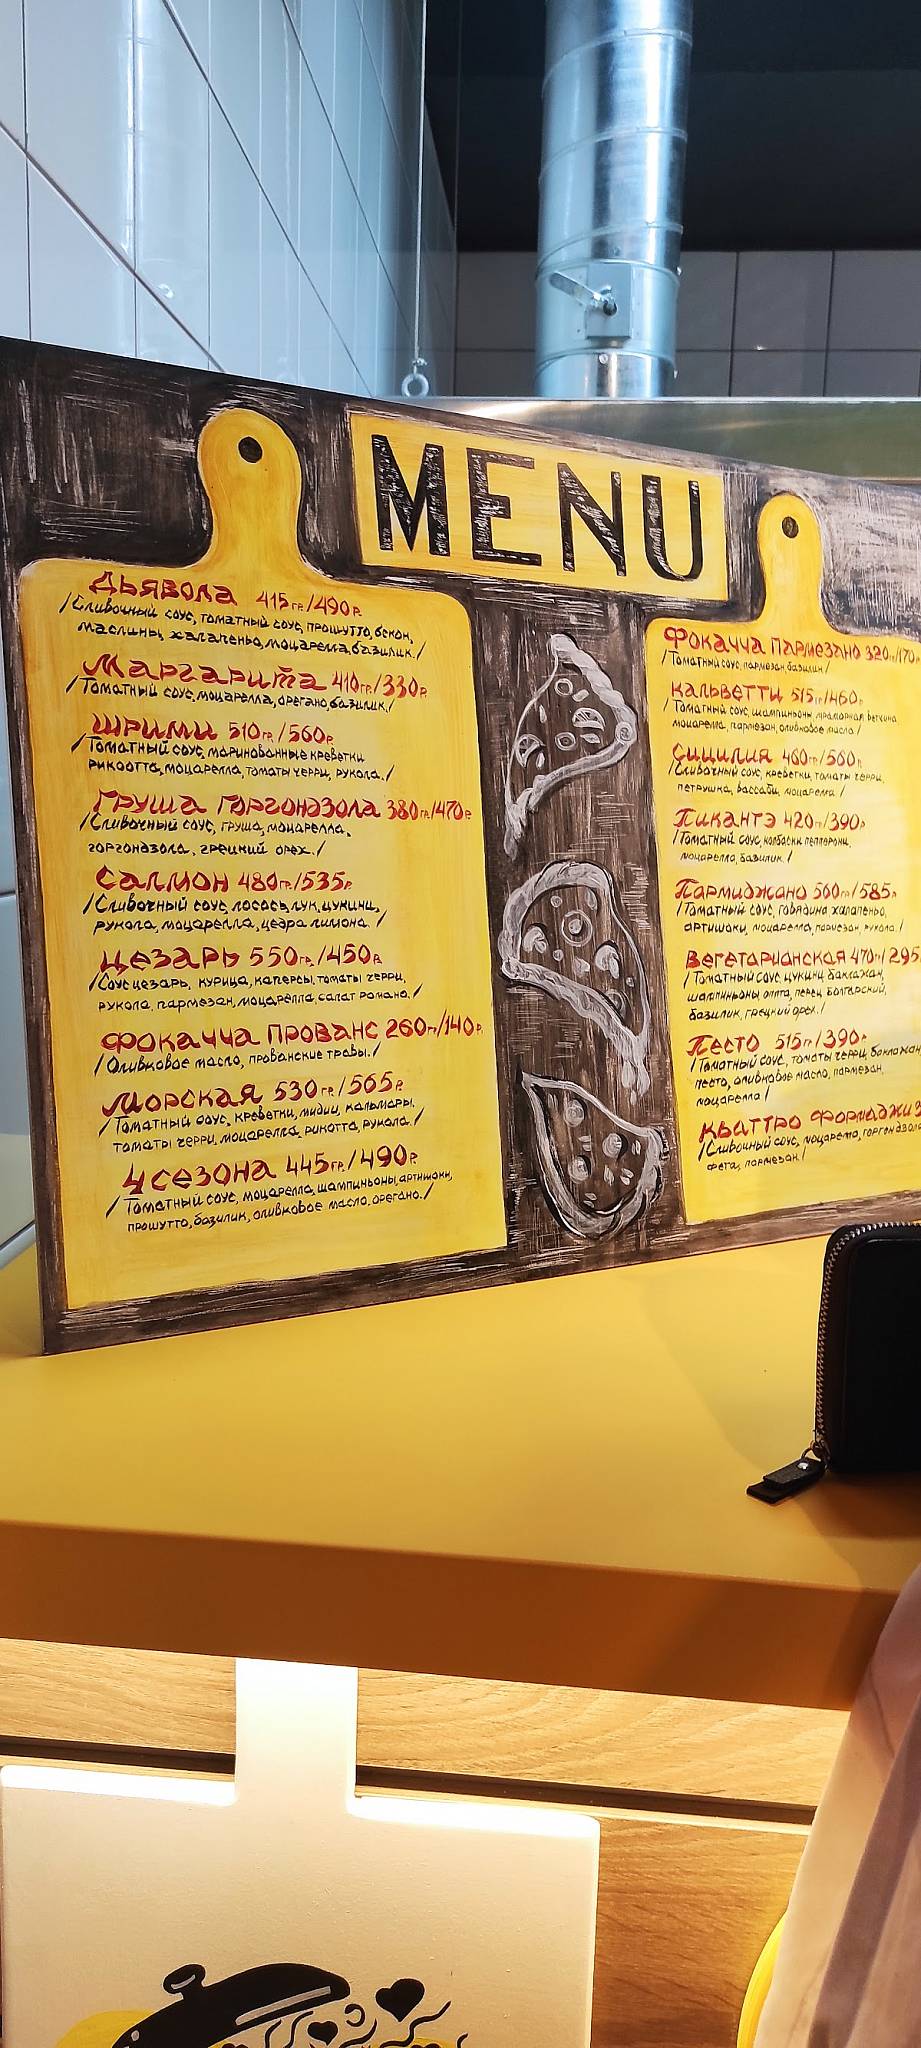 MENU
Дьявола 415гр/490р.
/Сливочный соус, томатный соус, прошутто, бекон,
маслины, халапеньо, моцарелла, базилик./
Маргарита 410гр/330р.
/Томатный соус, моцарелла, орегано, базилик./
Шрими 510гр/560р.
/Томатный соус, маринованные креветки
рикоотта, моцарелла, томаты черри, рукола./
Груша горгондзола 380гр/470р.
/Сливочный соус, груша, моцарелла,
горгондзола, грецкий орех./
Салмон 480гр/535р.
/Сливочный соус, лосось, лук, цукини,
рукола, моцарелла, цедра лимона./
Цезарь 550гр/450р.
/Соус цезарь, курица, каперсы, томаты черри,
рукола, пармезан, моцарелла, салат романо./
Фокачча прованс 260гр/140р.
/Оливковое масло, прованские травы./
Морская 530гр/565р.
/Томатный соус, креветки, мидии, кальмары,
томаты черри, моцарелла, рикотта, рукола./
4 сезона 445гр/490р.
/Томатный соус, моцарелла, шампиньоны, артишоки,
прошутто, базилик, оливковое масло, орегано./
Фокачча пармезано 320гр/170р.
/Томатный соус, пармезан, базилик/
Кальветти 515гр/460р.
/Томатный соус, шампиньоны, мраморная ветчина
моцарелла, пармезан, оливковое масло/
Сицилия 460гр/560р.
/Сливочный соус, креветки, томаты черри,
петрушка, вассаби, моцарелла./
Пикантэ 420гр/390р.
/Томатный соус, колбаски пепперони,
моцарелла, базилик./
Пармиджано 500гр/585р.
/Томатный соус, говядина халапеньо,
артишоки, моцарелла, пармезан, рукола./
Вегетарианская 470гр/295
/Томатный соус, цукини, баклажан,
шампиньоны, перец болгарский,
базилик, грецкий орех./
Песто 515гр/390р.
/Томатный соус, томаты черри, баклажан
песто, оливковое масло, пармезан,
моцарелла/
Кваттро формаджи
/Сливочный соус, моцарелла, горгондзола
фета, пармезан./